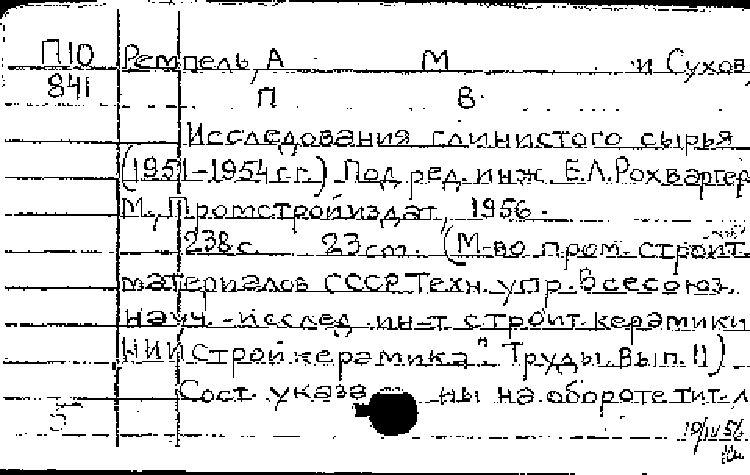 П10 Ремпель, А М и Сухов,
841 П В.
Исследования глинистого сырья
(1951-1954 г.г.) Под ред. инж. Е.Л. Рохваргер
М., Промстройиздат, 1956.
238 с. 23 cm. (М-во пром. строит.
материалов СССР. Техн. упр. Всесоюз.
науч.-исслед. ин-т строит. керамики
НИИ „Стройкерамика". Труды. Вып. II)
Сост. указаны на обороте тит. л
5
19/IV 56